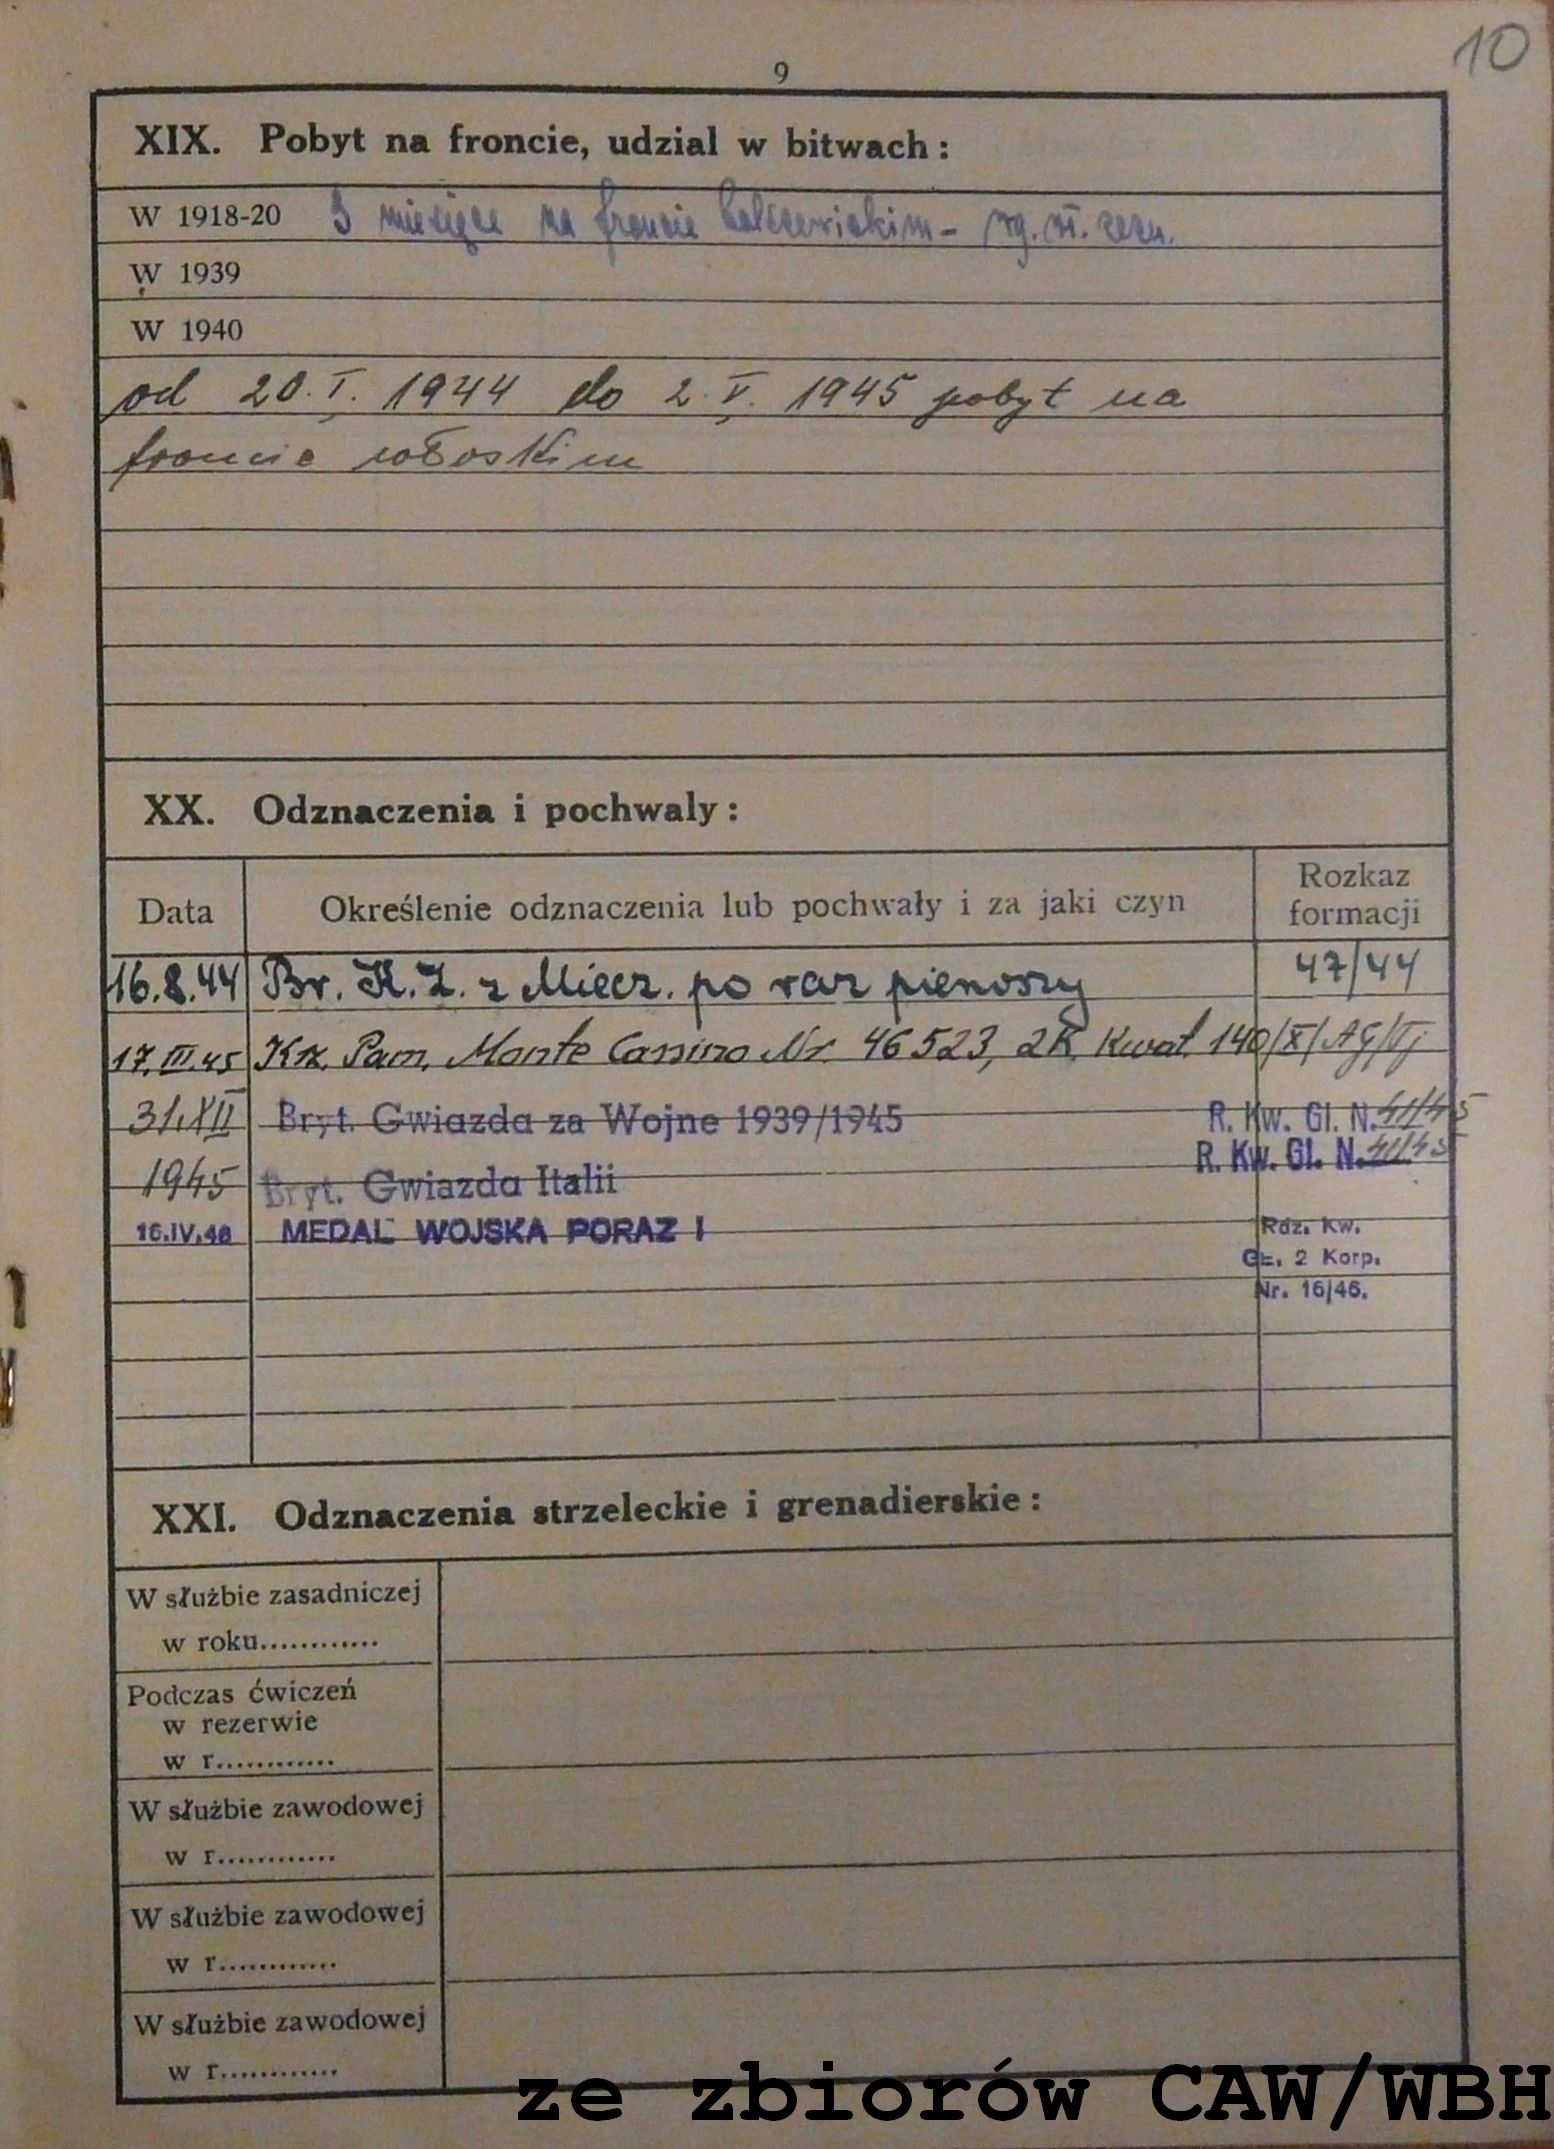 10
9
XIX. Pobyt na froncie, udzial w bitwach:
W 1918-20 3 miesięce na froncie bolszewickim - wg. wł. zezn.
W 1939
W 1940
od 20.I. 1944 do 2.V. 1945 pobyt na
froncie włoskim
XX. Odznaczenia i pochwaly:
Data Określenie odznaczenia lub pochwały i za jaki czyn Rozkaz formacji
16.8.44 Br. K.Z. z Miecz. po raz pierwszy 47/44
17.III.45 Krz. Pam. Monte Cassino Nr. 46523, 2K. Kwat. 140/X/AG/Tj
31.XII Bryt. Gwiazda za Wojne 1939/1945 R. Kw. Gl. N. 41/45
1945 Bryt. Gwiazda Italii R. Kw. Gl. N. 41/45
16.IV.46 MEDAL WOJSKA PORAZ I Rdz. Kw.
GŁ. 2 Korp.
Nr. 16/46.
XXI. Odznaczenia strzeleckie i grenadierskie:
W służbie zasadniczej
w roku............
Podczas ćwiczeń
w rezerwie
w r.............
W służbie zawodowej
w r.............
W służbie zawodowej
w r.............
W służbie zawodowej
w r.............
ze zbiorów CAW/WBH